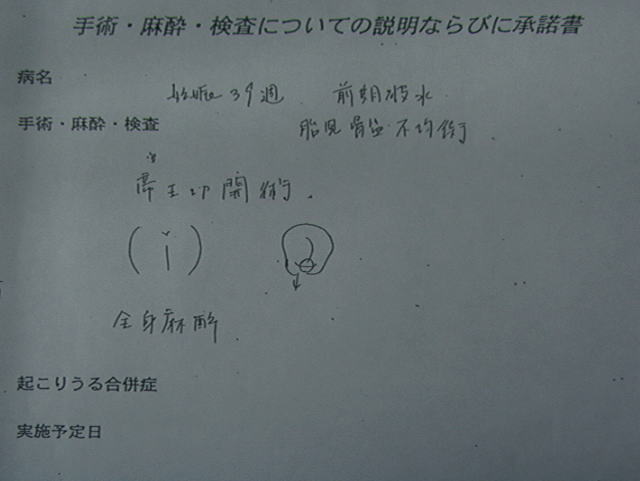 手術・麻酔・検査についての説明ならびに承諾書
病名
妊娠39週 前期破水
手術・麻酔・検査
胎児骨盤不均衡
帝王切開術
全身麻酔
起こりうる合併症
実施予定日